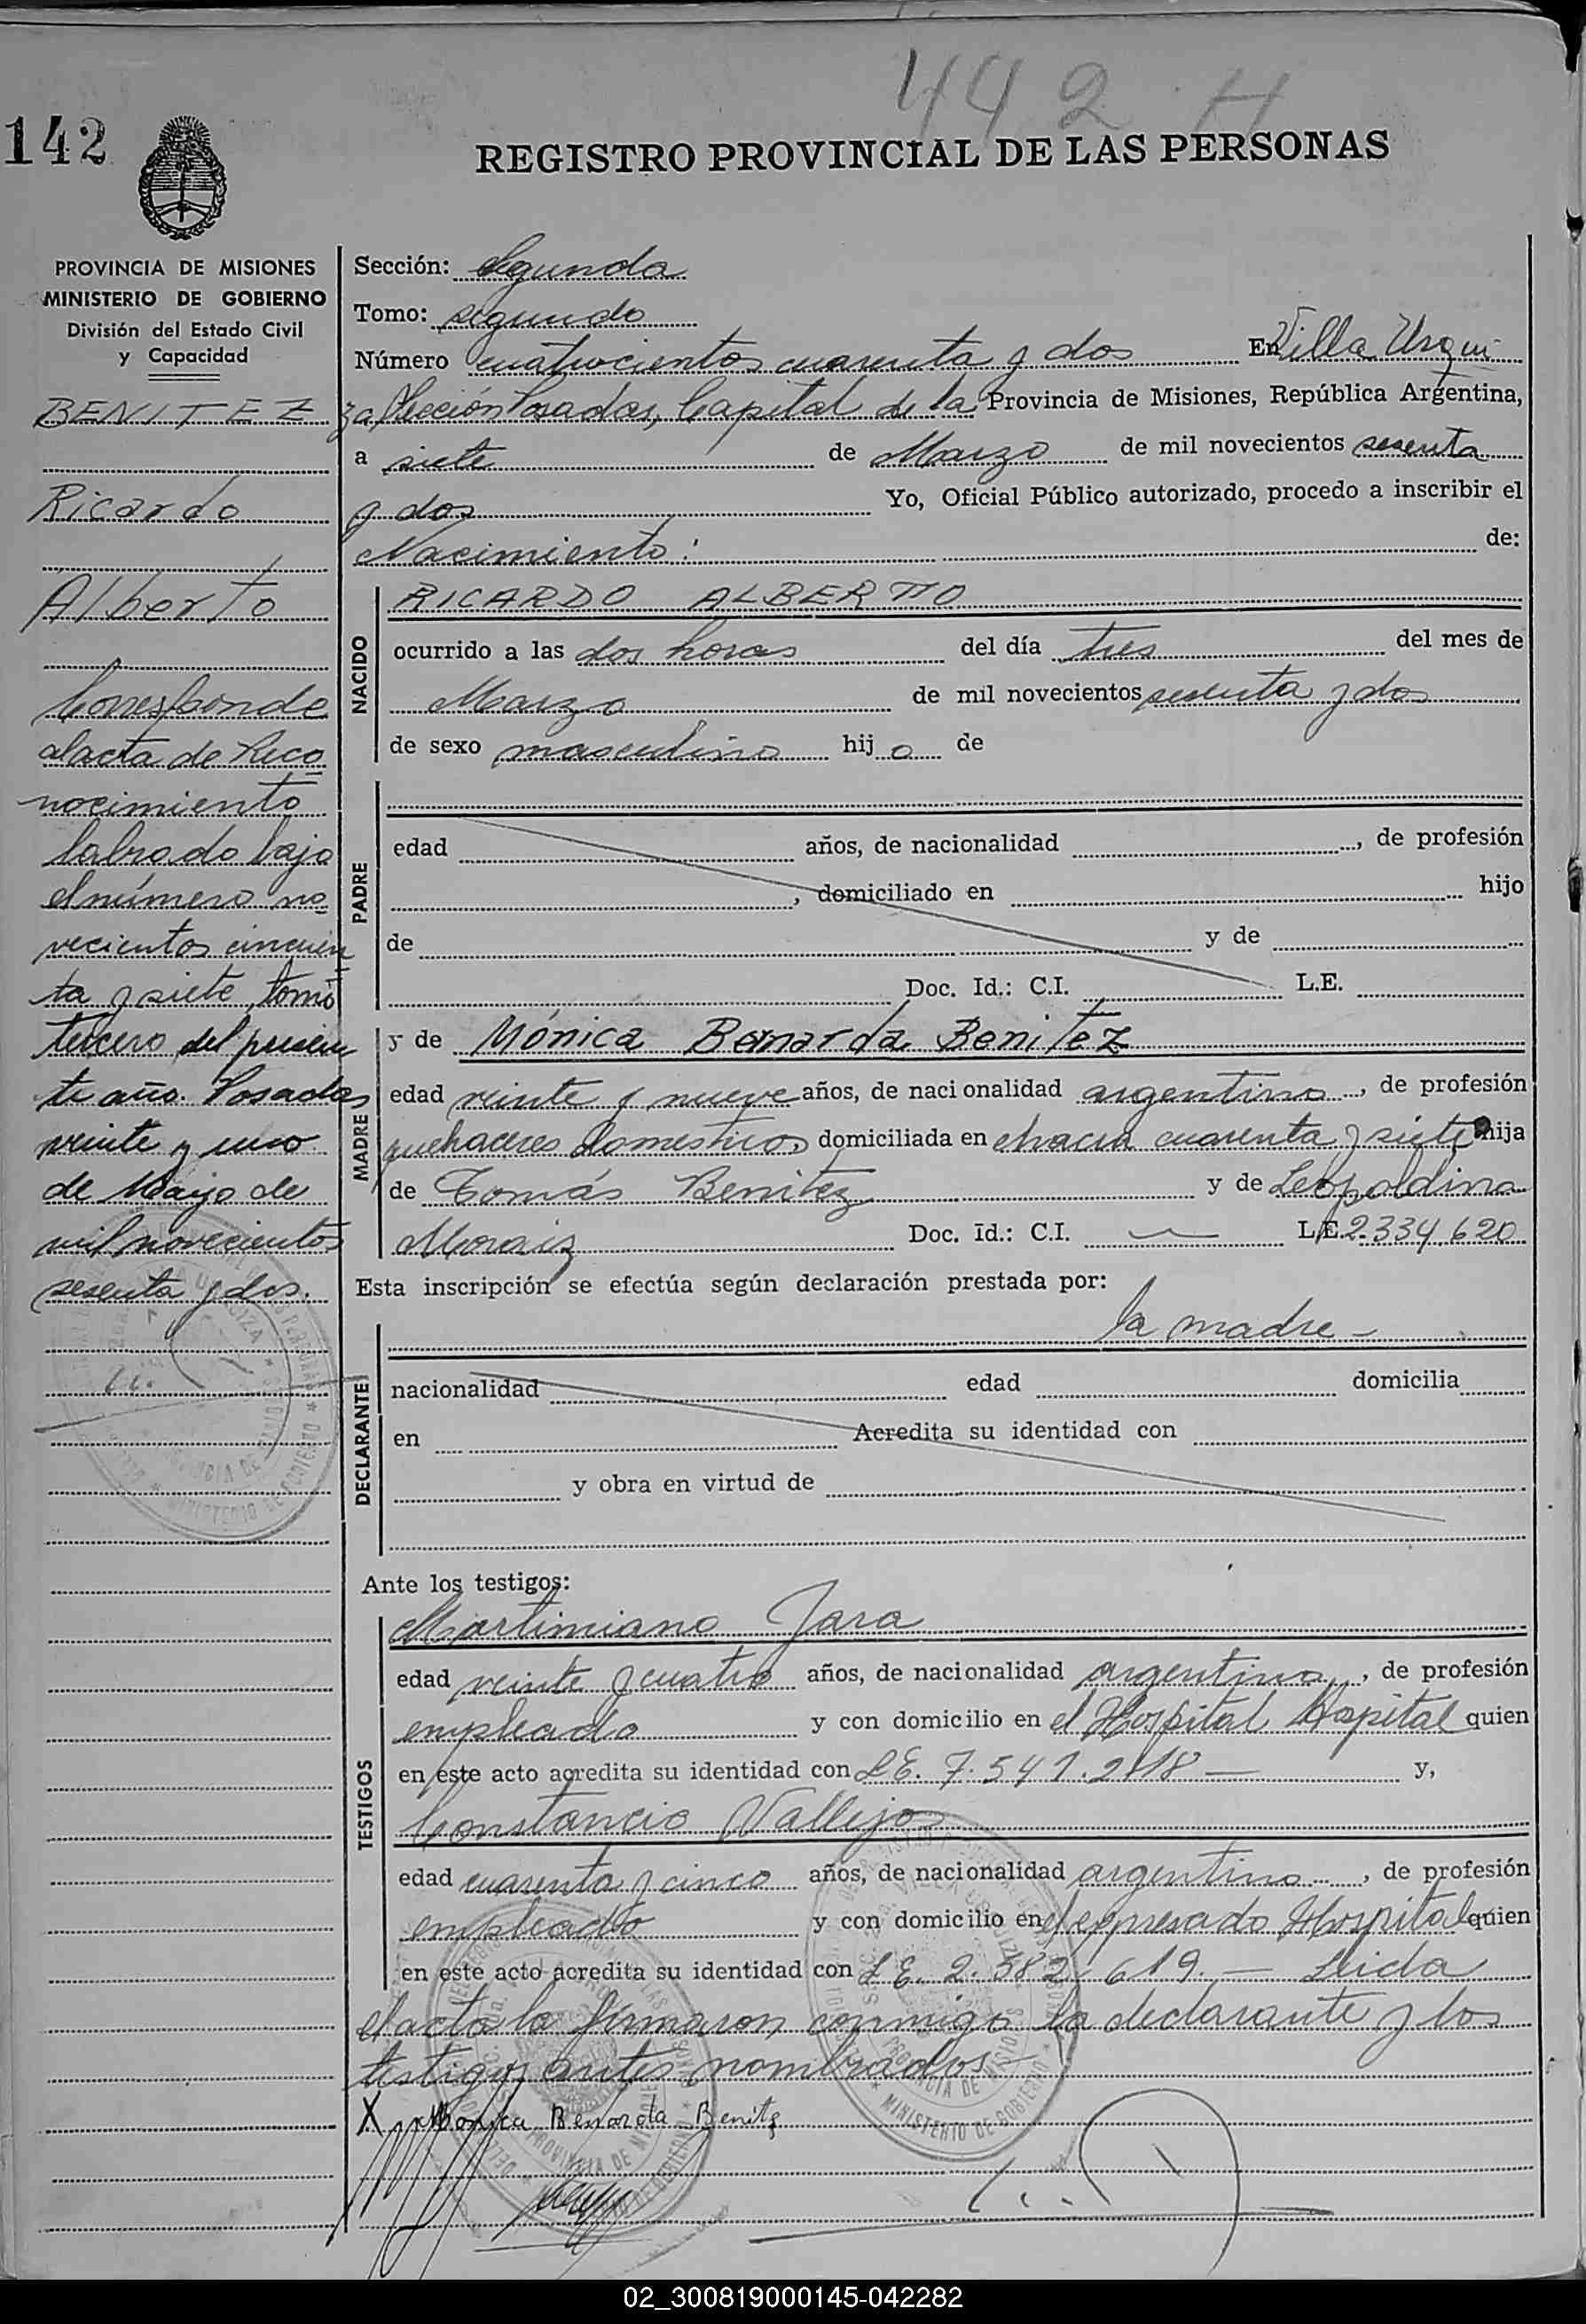 442 H
142
REGISTRO PROVINCIAL DE LAS PERSONAS
PROVINCIA DE MISIONES
MINISTERIO DE GOBIERNO
División del Estado Civil
y Capacidad
BENITEZ
Ricardo
Alberto
Corresponde
al acta de Reco
nocimiento
labrado bajo
el número no
vecientos cincuen
ta y siete, tomo
tercero del presen
te año. Posadas
veinte y uno
de Mayo de
mil novecientos
sesenta y dos.
Sección: Segunda
Tomo: segundo
Número cuatrocientos cuarenta y dos En Villa Urqui
za Sección Posadas, Capital de la Provincia de Misiones, República Argentina,
a siete de Marzo de mil novecientos sesenta
y dos Yo, Oficial Público autorizado, procedo a inscribir el
Nacimiento: de:
NACIDO
RICARDO ALBERTO
ocurrido a las dos horas del día tres del mes de
Marzo de mil novecientos sesenta y dos
de sexo masculino hijo de
PADRE
edad años, de nacionalidad , de profesión
, domiciliado en hijo
de y de
Doc. Id.: C.I. L.E.
MADRE
y de Mónica Bernarda Benitez
edad veinte y nueve años, de nacionalidad argentina, de profesión
quehaceres domesticos domiciliada en chacra cuarenta y siete hija
de Tomás Benitez y de Leopoldina
Moraiz Doc. Id.: C.I. — L.E. 2.334.620
Esta inscripción se efectúa según declaración prestada por:
la madre -
DECLARANTE
nacionalidad edad domicilia
en Acredita su identidad con
y obra en virtud de
Ante los testigos:
TESTIGOS
Martimiano Jara
edad veinte y cuatro años, de nacionalidad argentina, de profesión
empleado y con domicilio en el Hospital Hospital quien
en este acto acredita su identidad con L.E. 7.541.218 — y,
Constancio Vallejos
edad cuarenta y cinco años, de nacionalidad argentina, de profesión
empleado y con domicilio en el expresado Hospital quien
en este acto acredita su identidad con L.E. 2.382.619. — Leida
el acta la firmaron conmigo la declarante y los
testigos antes nombrados
X Monica Bernarda Benitz
02_300819000145-042282